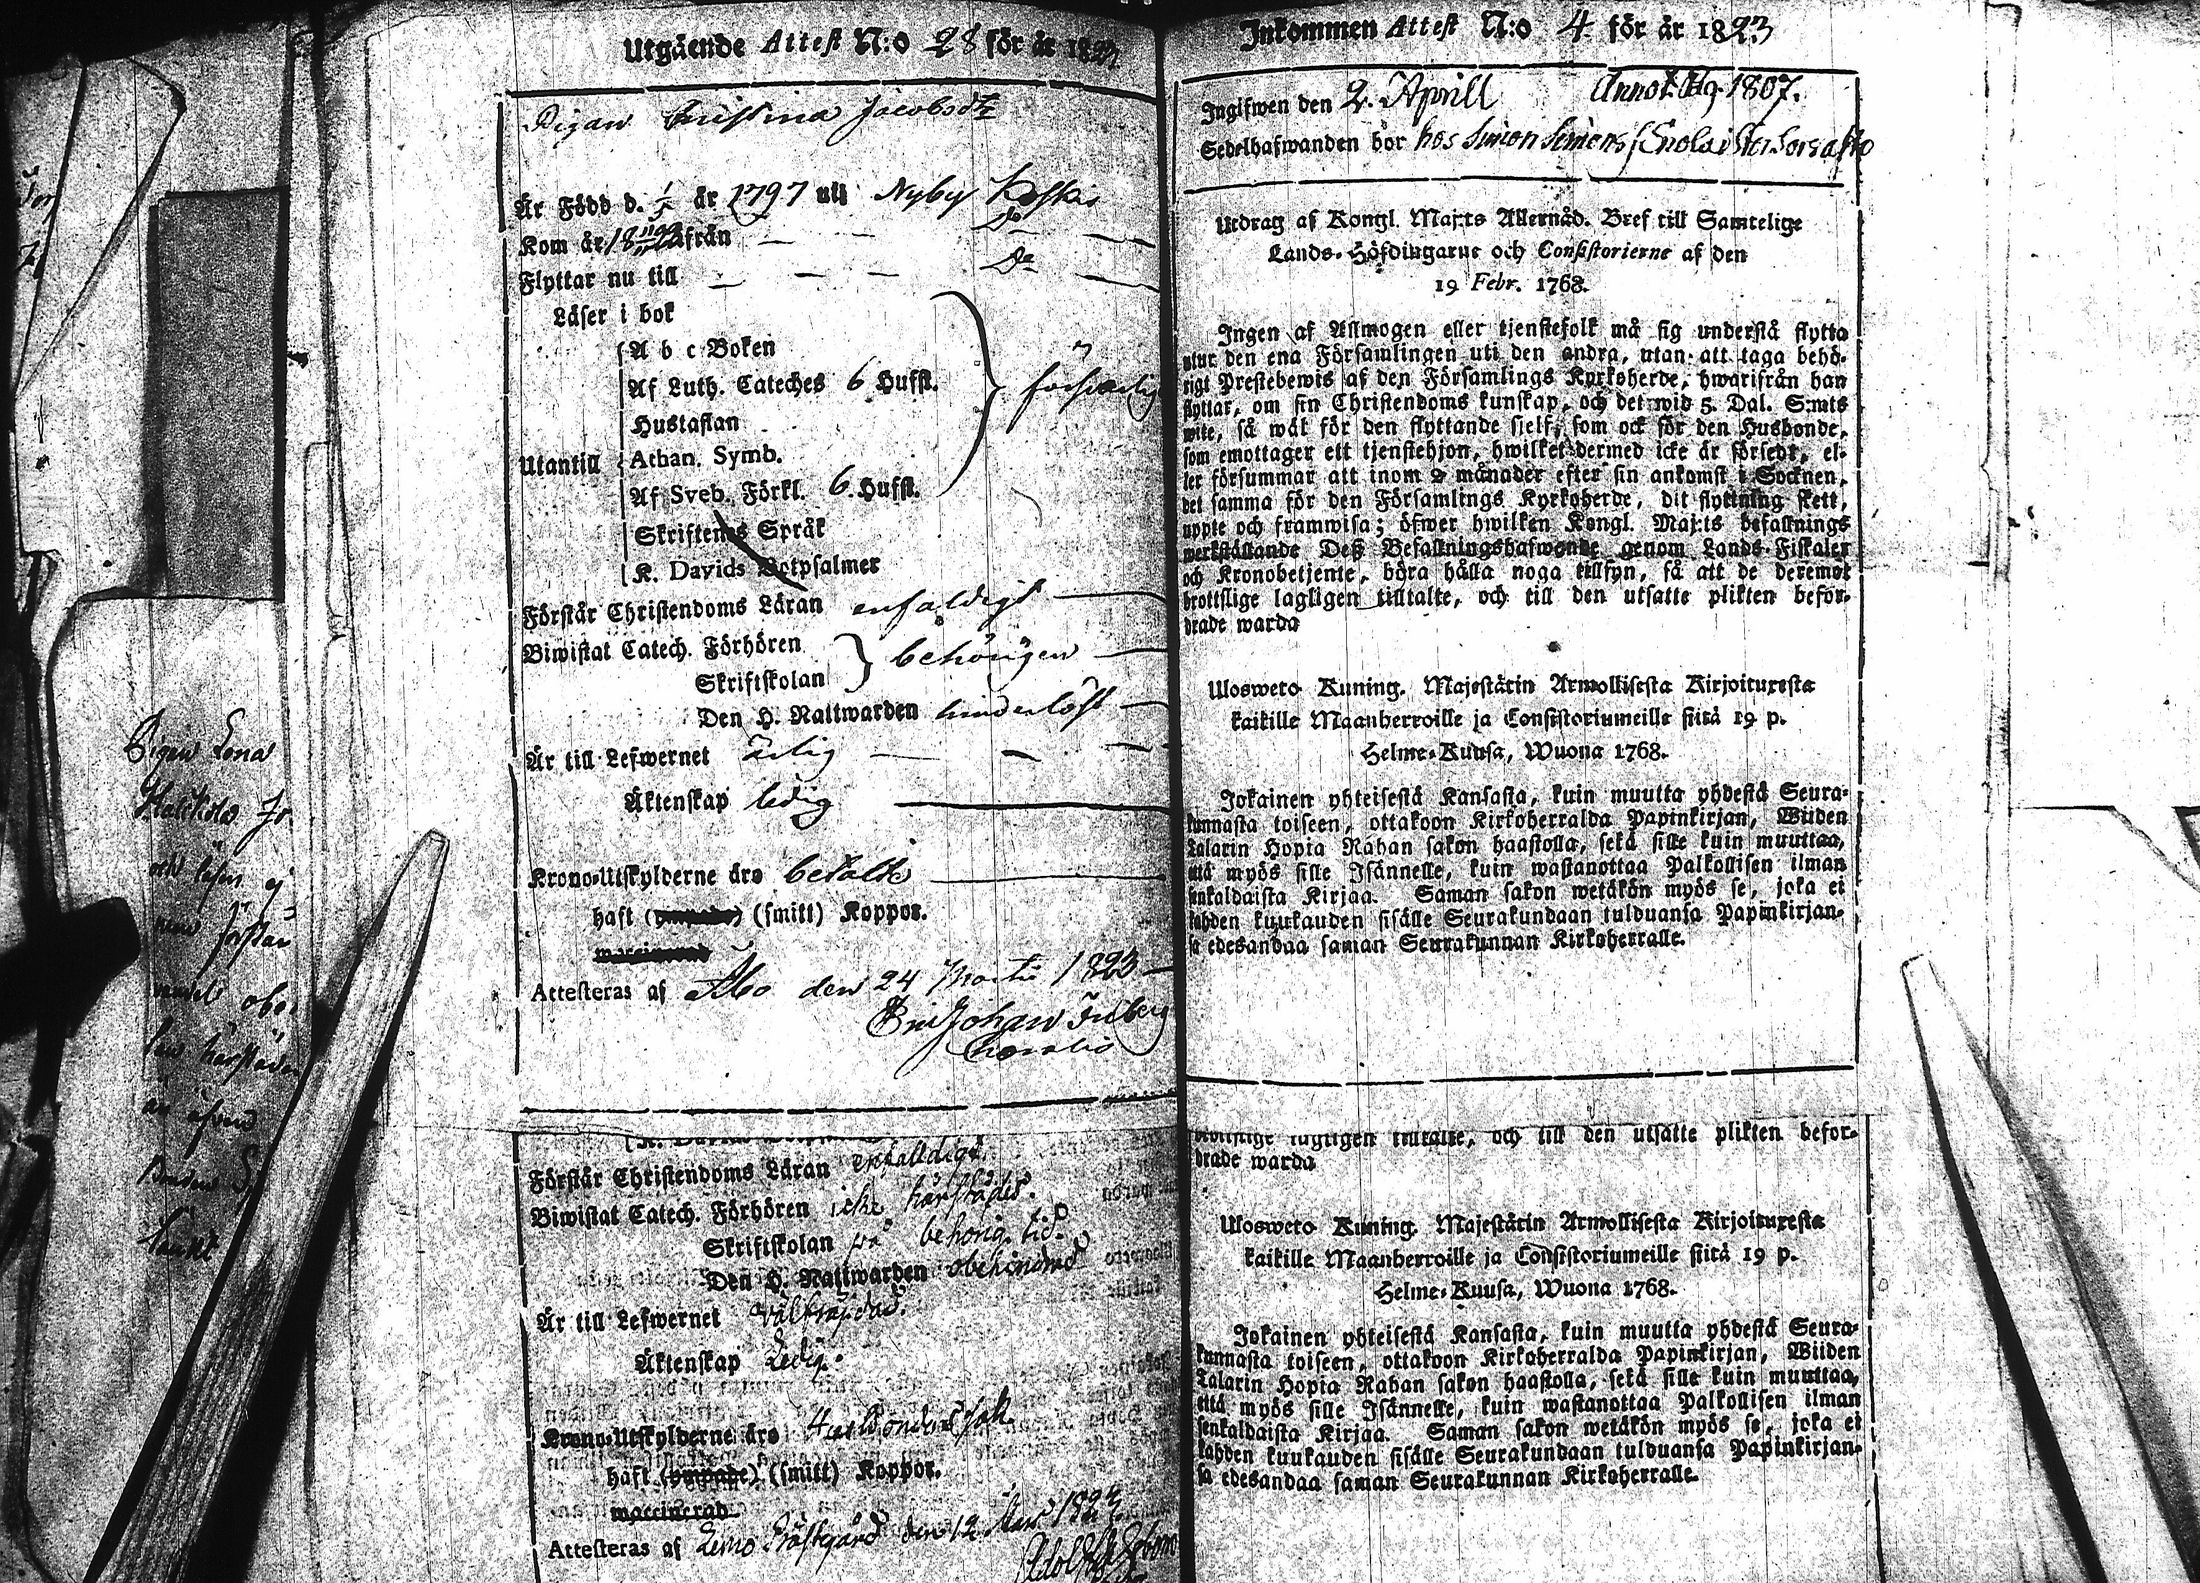 Utgående Attest N:o 28 för år 1823
Pigan Christina Jacobsdr
Är Född d. 1/5 år 1797 uti Nyby Koskis
Kom år 18 ifrån — — Do
Flyttar nu till — — — Do
Läser i bok
A b c Boken
Af Luth. Cateches 6 Hufst.
Hustaflan
Utantill Athan. Symb. försvarlig
Af Sveb. Förkl. 6 Hufst.
Skriftenes Språk
K. Davids Botpsalmer
Förstår Christendoms Läran enfaldigt
Biwistat Catech. Förhören
Skriftskolan behörigen
Den H. Nattwarden hinderlöst
Är till Lefwernet ärlig
Äktenskap ledig
Krono-Utskylderne äro betalte
haft (smitt) Koppor.
Attesteras af Åbo den 24 Martii 1823
Johan
Förstår Christendoms Läran enfalldigt.
Biwistat Catech. Förhören icke härstädes.
Skriftskolan på behörig tid.
Den H. Nattwarden obehindrad
Är till Lefwernet välfräjdad.
Äktenskap Ledig.
Krono-Utskylderne äro Husbondens sak.
haft (ympade) (smitt) Koppor.
maccinerad
Attesteras af Lemo Prästegård den 12 Mars 1823
Adolf
Inkommen Attest N:o 4 för år 1823
Ingifwen den 2. Aprill Annot. pag. 1807.
Sedelhafwanden bor hos Simon Simons
Utdrag af Kongl. Maj:ts Allernåd. Bref till Samtelige
Lands-Höfdingarne och Consistorierne af den
19 Febr. 1768.
Ingen af Allmogen eller tjenstefolk må sig understå flytta
utur den ena Församlingen uti den andra, utan att taga behö-
rigt Prestebewis af den Församlings Kyrkoherde, hwarifrån han
flyttar, om sin Christendoms kunskap, och det wid 5. Dal. S:mts
wite, så wäl för den flyttande sjelf, som ock för den Husbonde,
som emottager ett tjenstehjon, hwilket dermed icke är försedt, el-
ler försummar att inom 2 månader efter sin ankomst i Socknen,
det samma för den Församlings Kyrkoherde, dit flyttning skett,
uppte och framwisa; öfwer hwilken Kongl. Maj:ts befallnings
werkställande Deß Befallningshafwande genom Lands-Fiskaler
och Kronobetjente, böra hålla noga tillsyn, så att de deremot
brottslige lagligen tilltalte, och till den utsatte plikten beför-
drade warda
Ulosweto Kuning. Majestätin Armollisesta Kirjoituxesta
kaikille Maanherroille ja Consistoriumeille siitä 19 p.
Helme-Kuusa, Wuona 1768.
Jokainen yhteisestä Kansasta, kuin muutta yhdestä Seura-
kunnasta toiseen, ottakoon Kirkoherralda Papinkirjan, Wiiden
Talarin Hopia Rahan sakon haastolla, sekä sille kuin muuttaa,
että myös sille Isännelle, kuin wastanottaa Palkollisen ilman
senkaldaista Kirjaa. Saman sakon wetäkön myös se, joka ei
kahden kuukauden sisälle Seurakundaan tulduansa Papinkirjan-
sa edesandaa saman Seurakunnan Kirkoherralle.
brottslige lagligen tilltalte, och till den utsatte plikten beför-
drade warda
Ulosweto Kuning. Majestätin Armollisesta Kirjoituxesta
kaikille Maanherroille ja Consistoriumeille siitä 19 p.
Helme-Kuusa, Wuona 1768.
Jokainen yhteisestä Kansasta, kuin muutta yhdestä Seura-
kunnasta toiseen, ottakoon Kirkoherralda Papinkirjan, Wiiden
Talarin Hopia Rahan sakon haastolla, sekä sille kuin muuttaa,
että myös sille Isännelle, kuin wastanottaa Palkollisen ilman
senkaldaista Kirjaa. Saman sakon wetäkön myös se, joka ei
kahden kuukauden sisälle Seurakundaan tulduansa Papinkirjan-
sa edesandaa saman Seurakunnan Kirkoherralle.
Pigan Lena